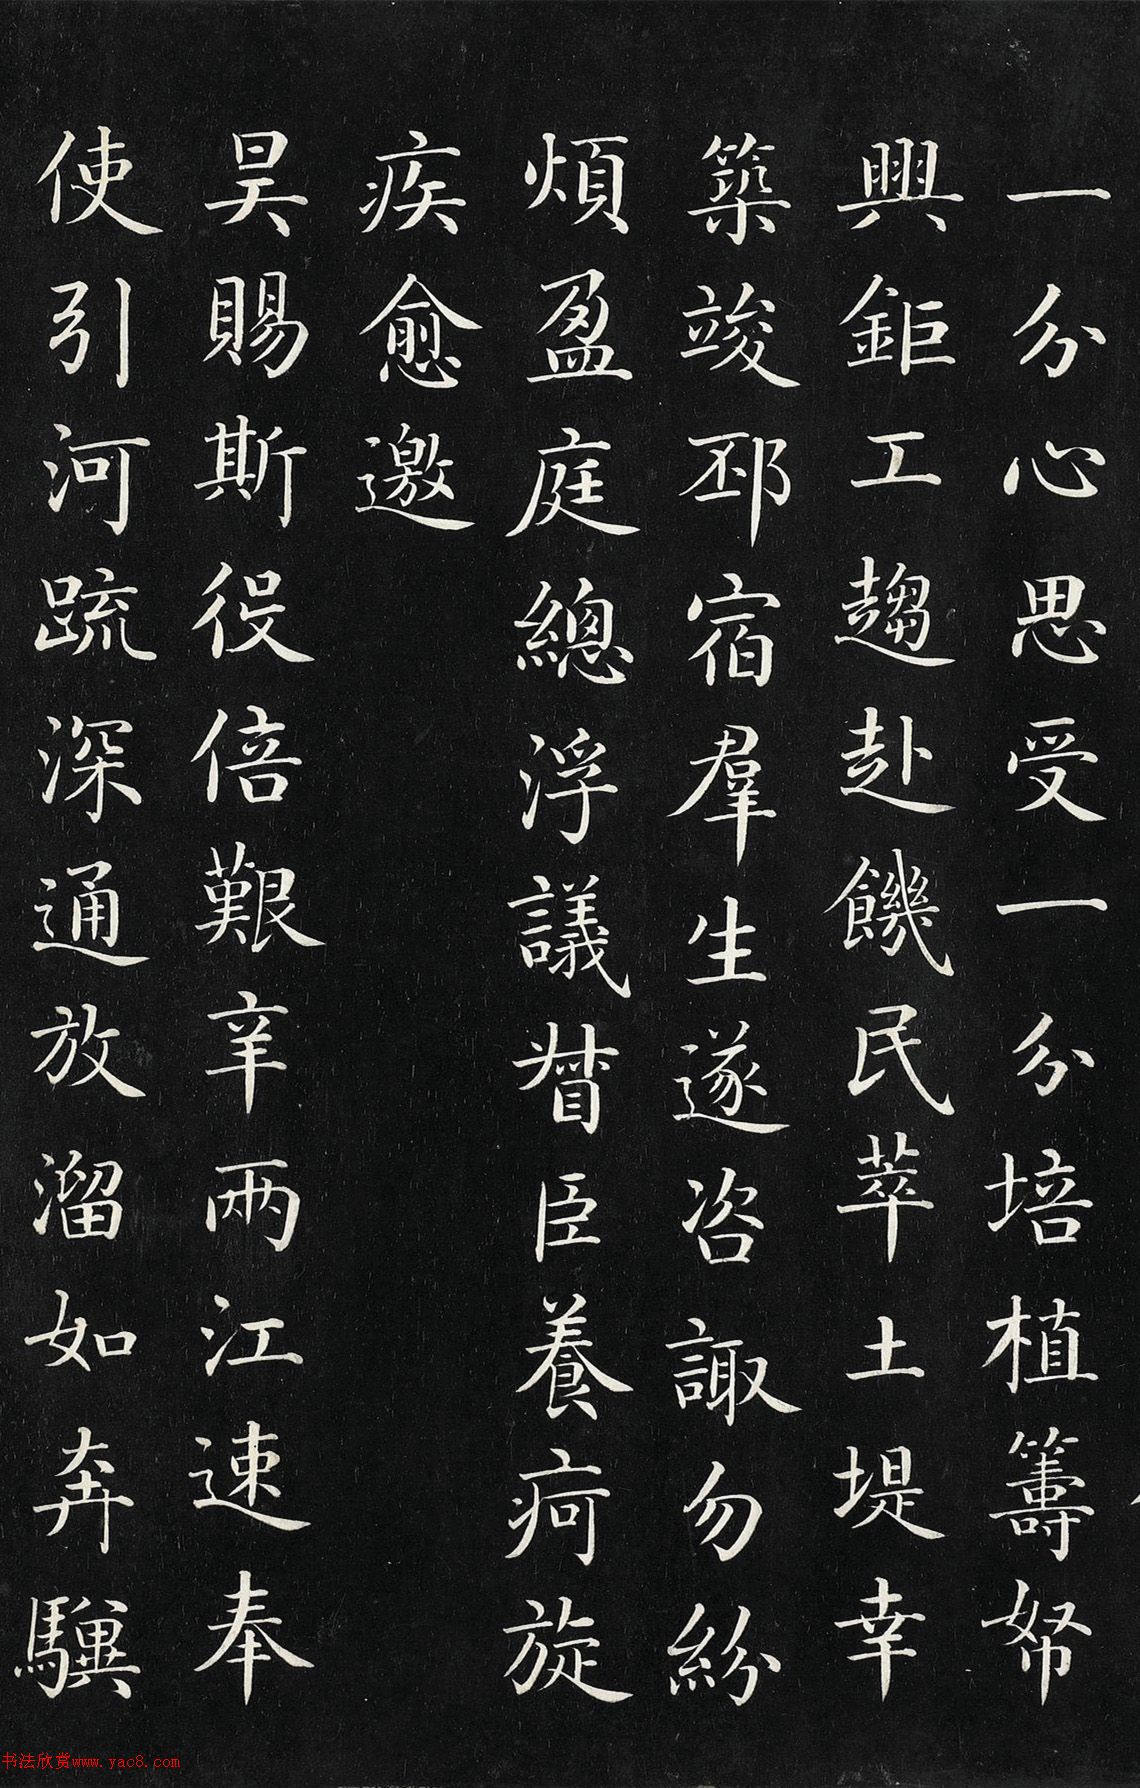 一分心思受一分培植籌帑
興鉅工趨赴饑民萃土堤幸
築竣邳宿羣生遂咨諏勿紛
煩盈庭總浮議朁臣養疴旋
疾愈邀
昊賜斯役倍艱辛兩江速奉
使引河疏深通放溜如奔驥
书法欣赏www.yac8.com